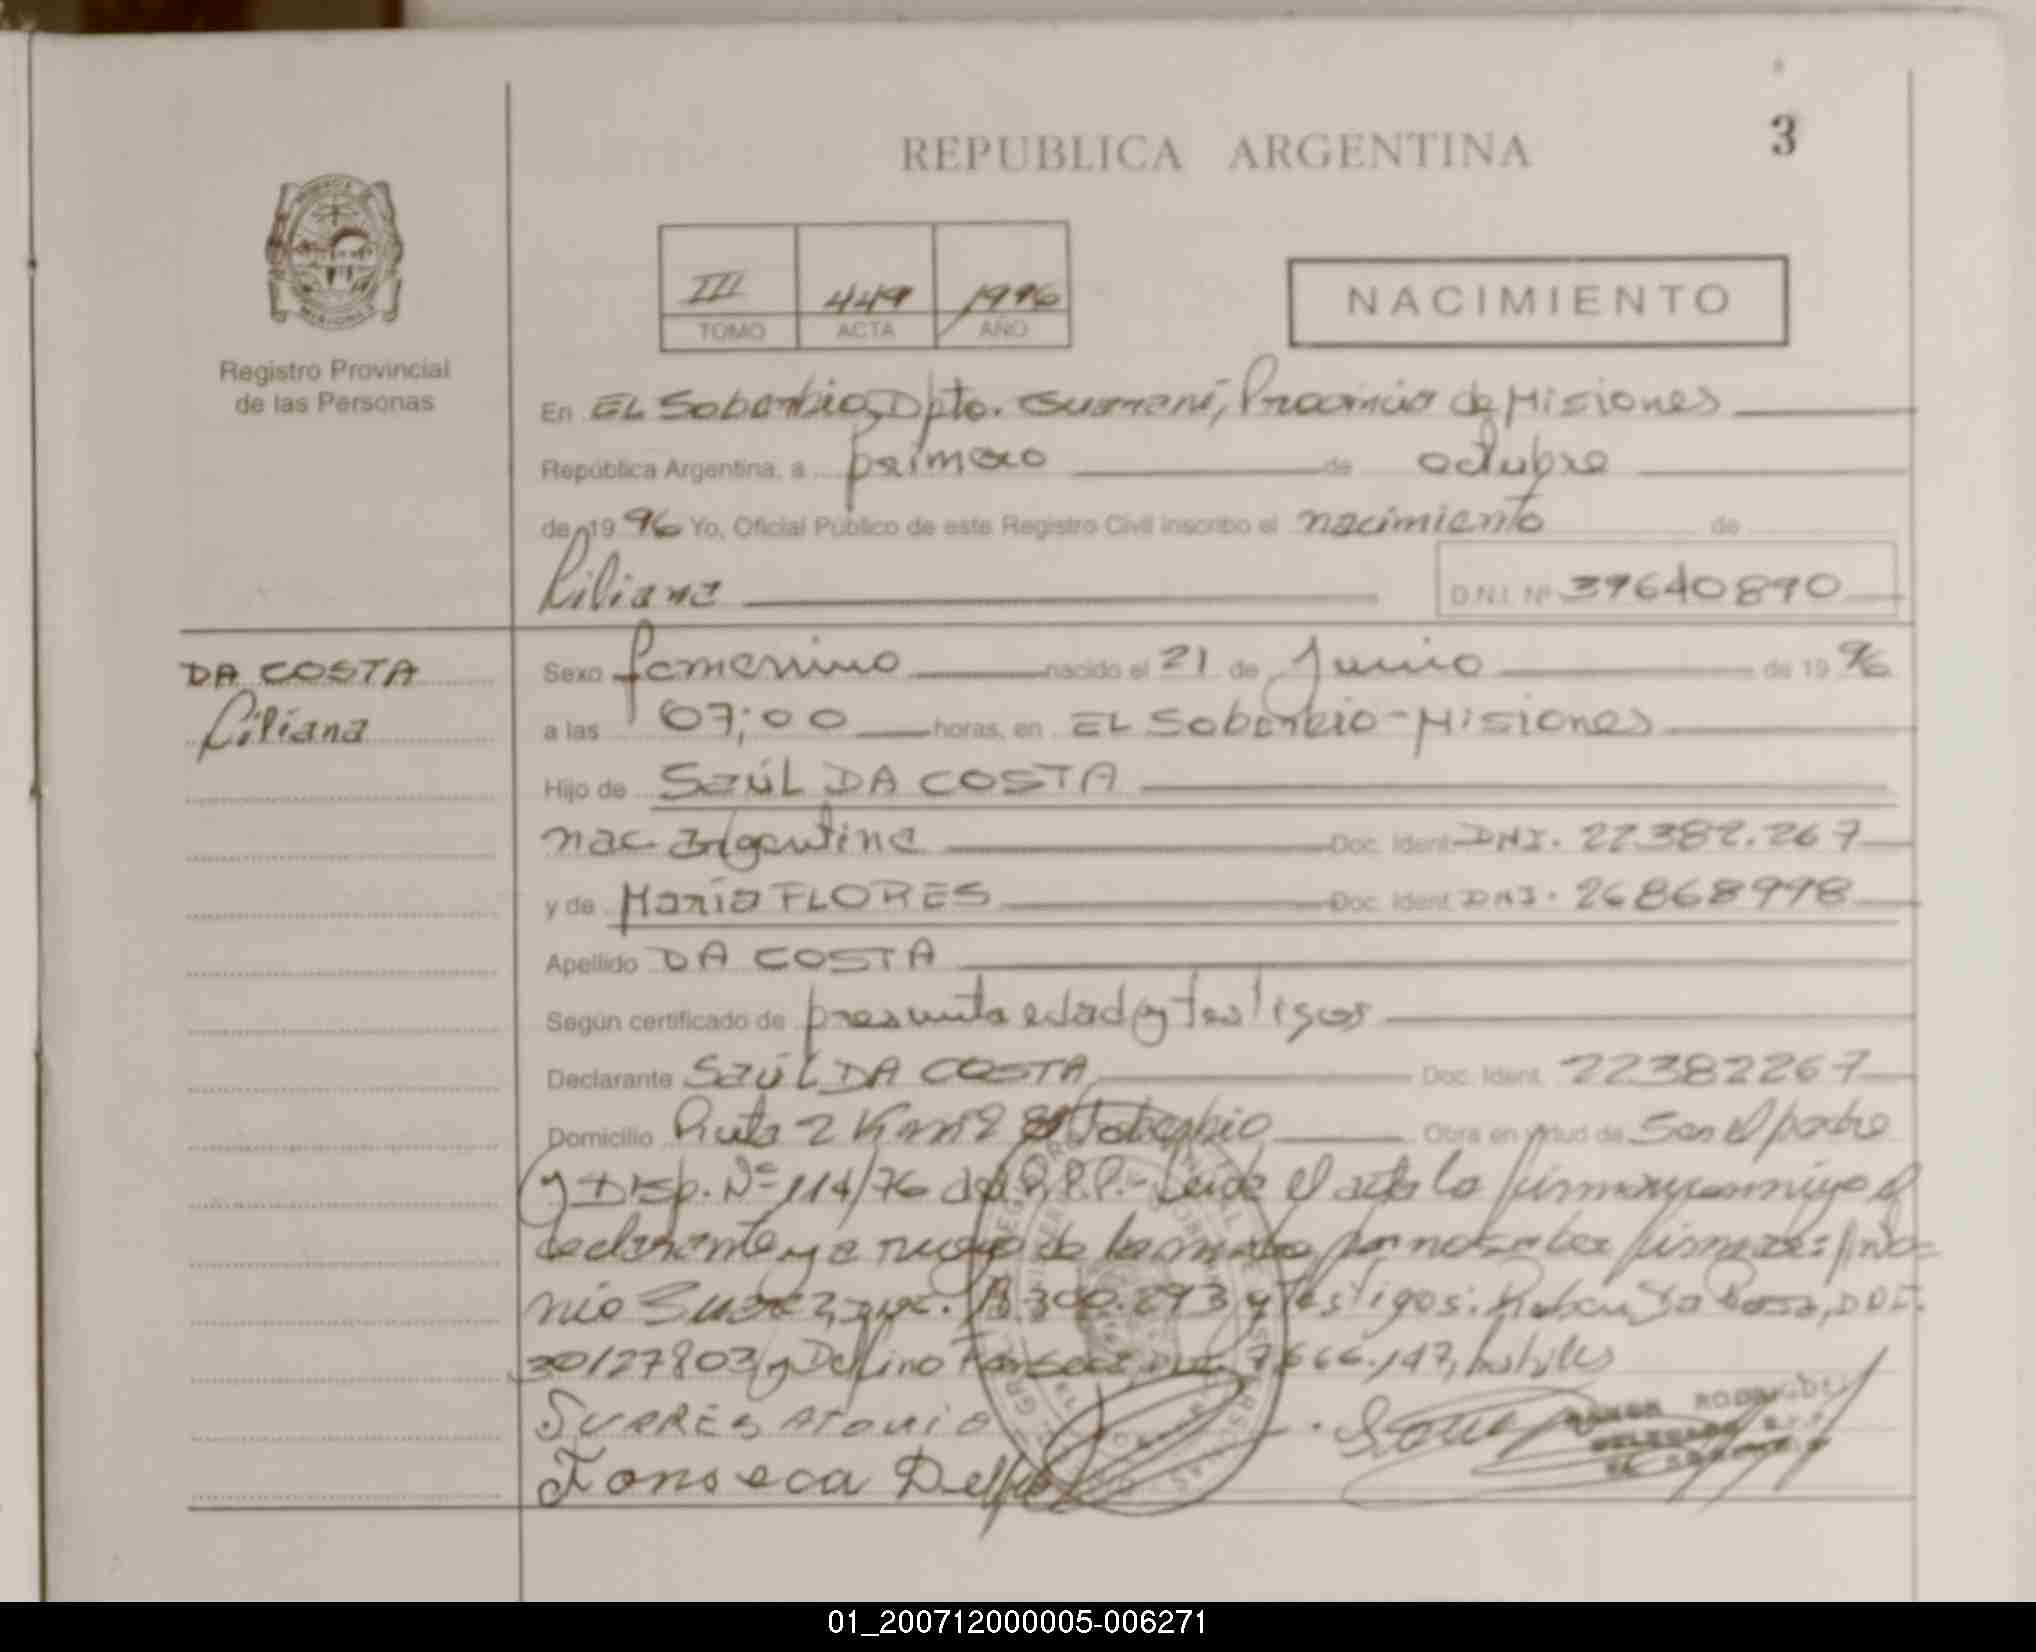 3
REPUBLICA ARGENTINA
III 449 1996
TOMO ACTA AÑO
NACIMIENTO
Registro Provincial
de las Personas
En EL Soberbio, Dpto. Guaraní, Provincia de Misiones
República Argentina, a primero de octubre
de 19 96 Yo, Oficial Público de este Registro Civil inscribo el nacimiento de
Liliana D.N.I. Nº 39640890
DA COSTA
Liliana
Sexo femenino nacido el 21 de Junio de 19 96
a las 07;00 horas, en EL Soberbio-Misiones
Hijo de Saúl DA COSTA
nac. argentina Doc. Ident. DNI. 22.382.267
y de María FLORES Doc. Ident. DNI. 26868998
Apellido DA COSTA
Según certificado de presunta edad y testigos
Declarante Saúl DA COSTA Doc. Ident. 22382267
Domicilio Ruta 2 Km 2 El Soberbio Obra en virtud de Ser el padre
y Disp. Nº 114/76 del R.P.P.- Leída el acta la firman conmigo el
declarante y a ruego de la madre por no saber firmar: Anto=
nio Suarez, .300.293 y testigos: Ruben Da Rosa, DNI.
30127803 y Delfino Fonseca 7.666.147, habiles
SUARES ATONIO
Fonseca Delfino
RAMON RODRIGUEZ
DELEGADO R.P.P.
EL SOBERBIO
01_200712000005-006271